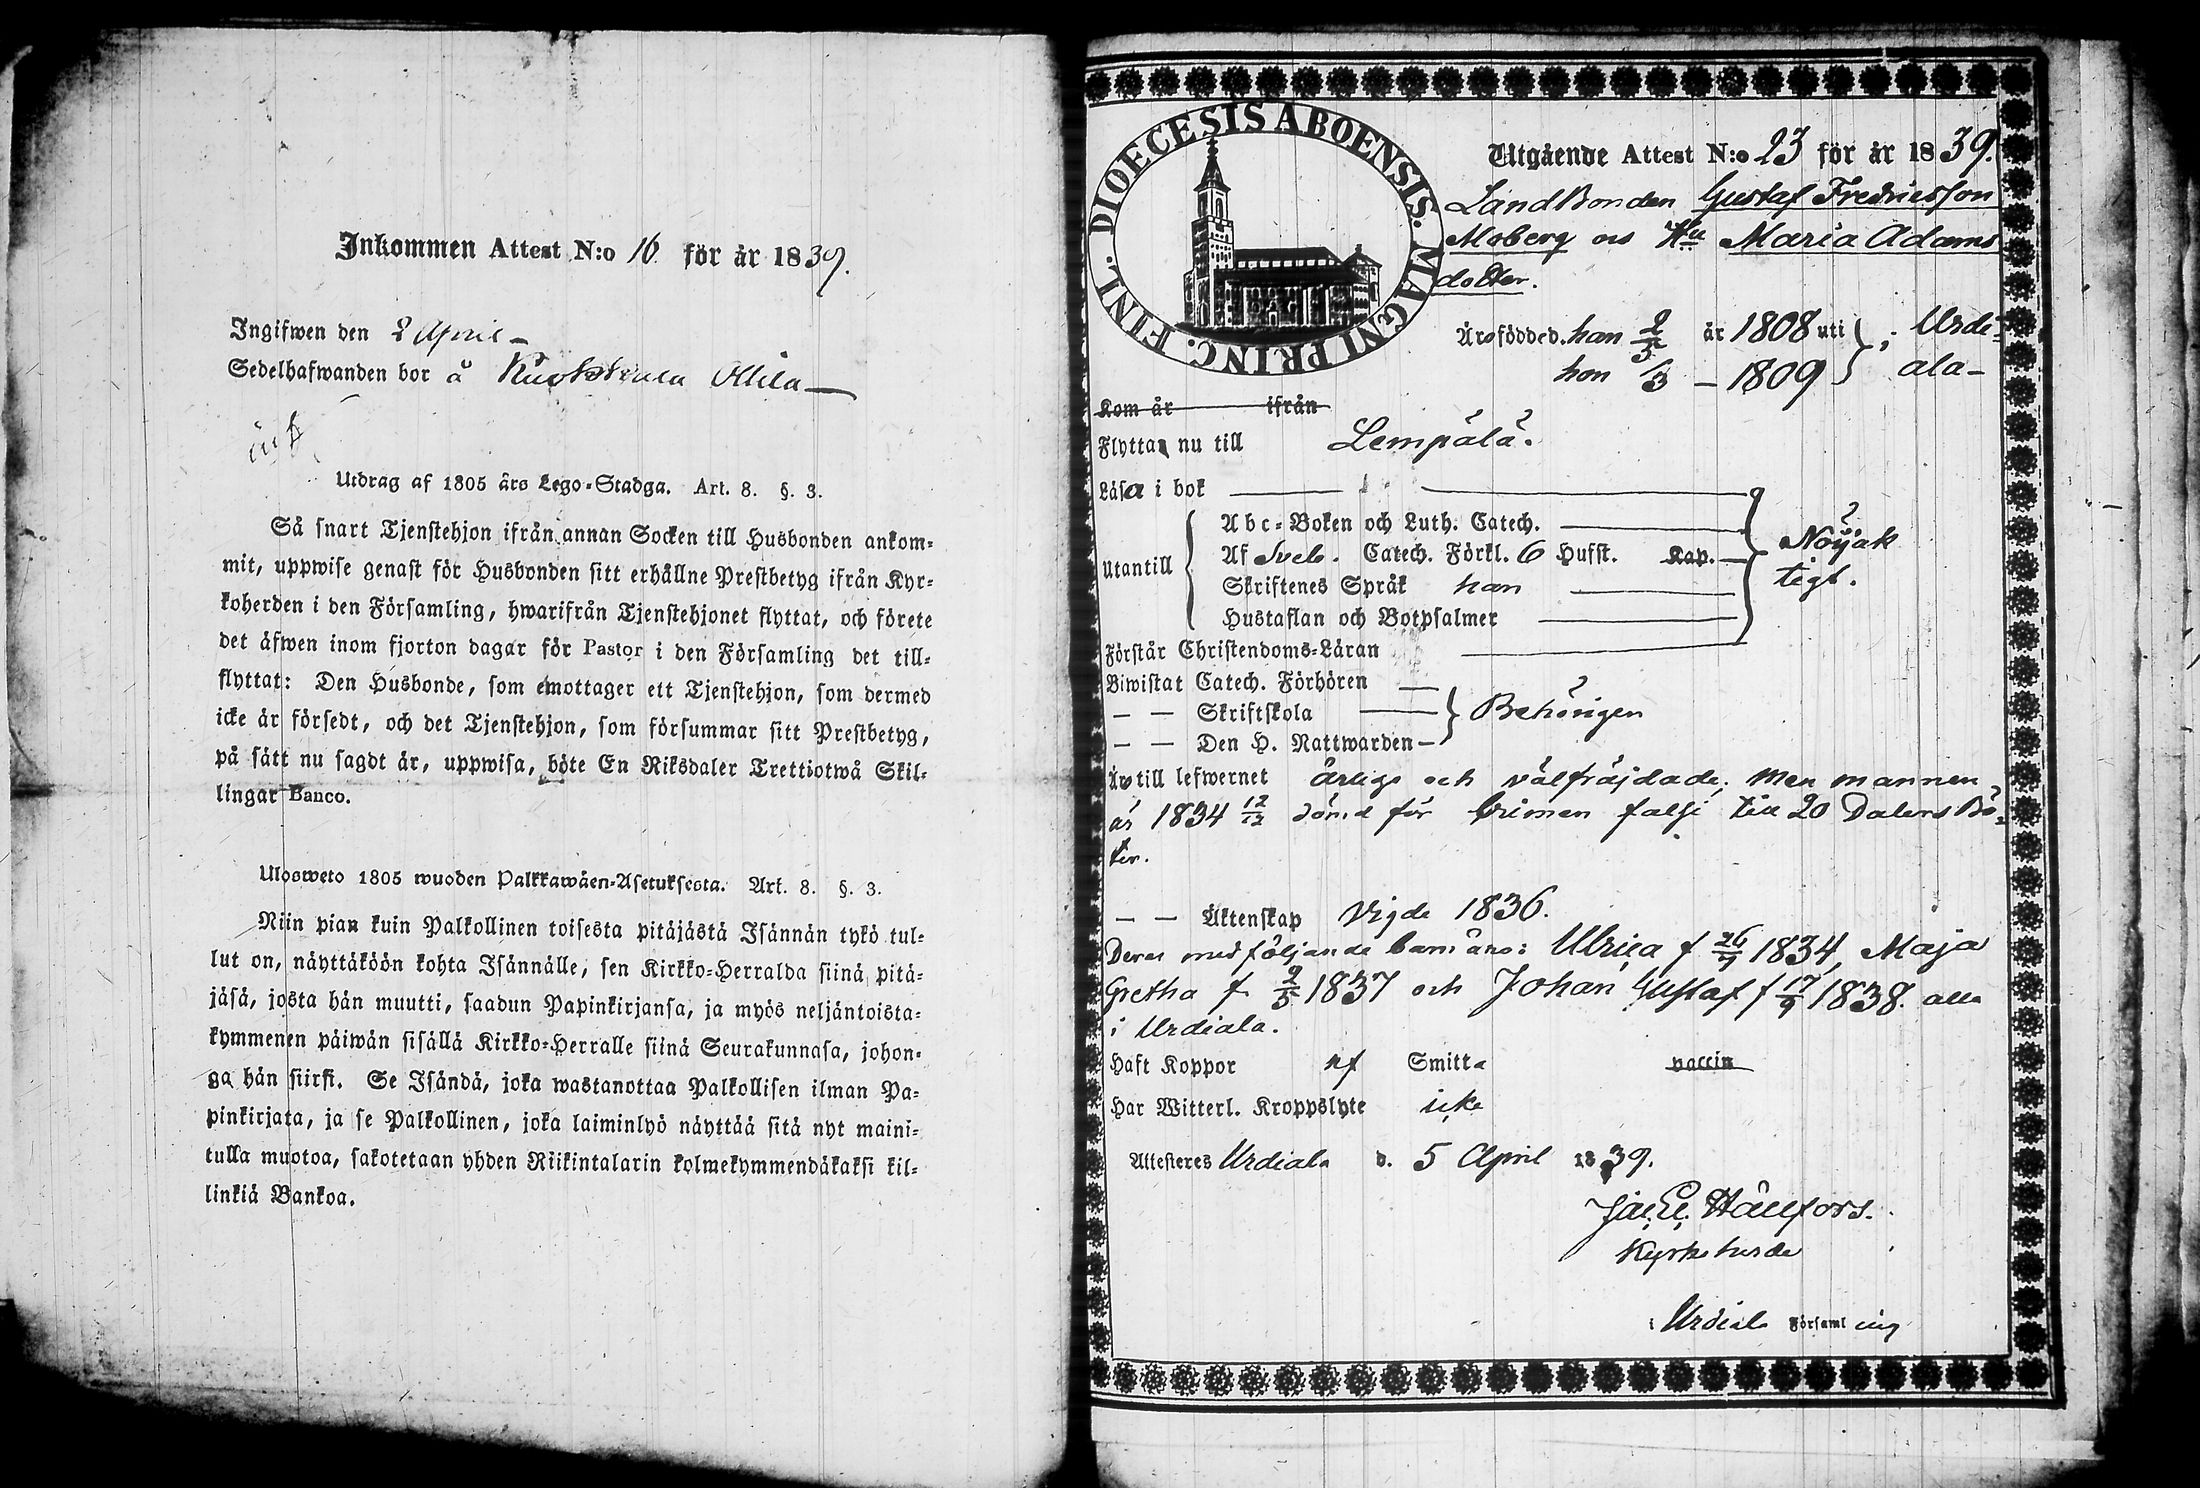 Inkommen Attest N:o 16 för år 1839.
Ingifwen den 2 April
Sedelhafwanden bor å Kuokkala Ollila
Utdrag af 1805 års Lego-Stadga. Art. 8. §. 3.
Så snart Tjenstehjon ifrån annan Socken till Husbonden ankom-
mit, uppwise genast för Husbonden sitt erhållne Prestbetyg ifrån Kyr-
koherden i den Församling, hwarifrån Tjenstehjonet flyttat, och förete
det äfwen inom fjorton dagar för Pastor i den Församling det till-
flyttat: Den Husbonde, som emottager ett Tjenstehjon, som dermed
icke är försedt, och det Tjenstehjon, som försummar sitt Prestbetyg,
på sätt nu sagdt är, uppwisa, böte En Riksdaler Trettiotwå Skil-
lingar Banco.
Ulosweto 1805 wuoden Palkkawäen-Asetuksesta. Art. 8. §. 3.
Niin pian kuin Palkollinen toisesta pitäjästä Isännän tykö tul-
lut on, näyttäköön kohta Isännälle, sen Kirkko-Herralda siinä pitä-
jäsä, josta hän muutti, saadun Papinkirjansa, ja myös neljäntoista-
kymmenen päiwän sisällä Kirkko-Herralle siinä Seurakunnasa, johon-
ga hän siirsi. Se Isändä, joka wastanottaa Palkollisen ilman Pa-
pinkirjata, ja se Palkollinen, joka laiminlyö näyttää sitä nyt maini-
tulla muotoa, sakotetaan yhden Riikintalarin kolmekymmendäkaksi kil-
linkiä Bankoa.
DIOECESIS ABOENSIS. MAGNI PRINC. FINL.
Utgående Attest N:o 23 för år 1839.
LandBonden Gustaf Fredricsson
Moberg os Hu Maria Adams
dotter.
Äro födde d. han 2/5 år 1808 uti } i Urdi-
hon /3 – 1809 ala
Kom år ifrån
Flytta nu till Lempälä.
Läsa i bok
Abc-Boken och Luth. Catech.
Utantill Af Sveb. Catech. Förkl. 6 Hufst. Kap. Nöjak
Skriftenes Språk han tigt.
Hustaflan och Botpsalmer
Förstår Christendoms-Läran
Biwistat Catech. Förhören
— — Skriftskola } Behörigen
— — Den H. Nattwarden
Äro till lefwernet ärlige och välfräjdade; men mannen
är 1834 12/12 dömd för Crimen falsi till 20 Dalers Bö-
ter.
— — Äktenskap Vigde 1836.
Deras medföljande barn äro: Ulrica f 26/7 1834, Maja
Gretha f 2/5 1837 och Johan Gustaf f 17/9 1838. alla
i Urdiala.
Haft Koppor af Smitta vaccin
Har Witterl. Kroppslyte icke
Attesteres Urdiala d. 5 April 1839.
Jac. E. Hällfors.
Kyrkoherde
i Urdiala Församling